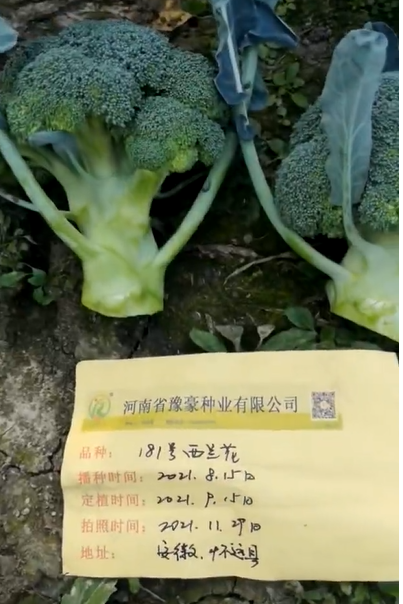 河南省豫豪种业有限公司
品种: 181号西兰花
播种时间: 2021.8.15日
定植时间: 2021.9.15日
拍照时间: 2021.11.29日
地址: 安徽.怀远县